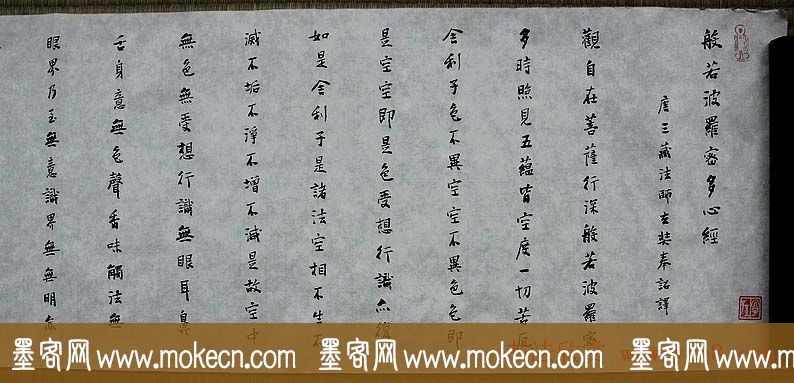 般若波羅密多心經
唐三藏法師玄奘奉詔譯
觀自在菩薩行深般若波羅密
多時照見五蘊皆空度一切苦厄
舍利子色不異空空不異色色即
是空空即是色受想行識亦復
如是舍利子是諸法空相不生不
滅不垢不淨不增不減是故空中
無色無受想行識無眼耳鼻
舌身意無色聲香味觸法無
眼界乃至無意識界無無明亦
墨客网 www.mokecn.com 墨客网 www.mokecn.com 墨客网 www.mokecn.com